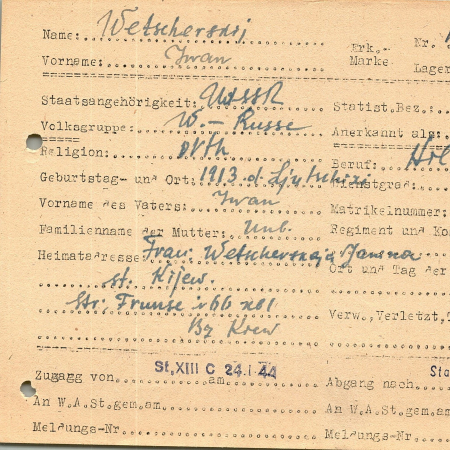 Name: Wetscherskij
Vorname: Iwan
Erk.- Marke
Nr.
Lager
Staatsangehörigkeit: UdSSR
Statist.Bez.:
Volksgruppe: W.- Russe
Anerkannt als:
Religion: orth
Beruf:
Geburtstag- und Ort: 1913. d.
Dienstgrad:
Vorname des Vaters: Iwan
Matrikelnummer:
Familienname der Mutter: Unb.
Regiment und Ko
Heimatadresse: Frau: Wetscherskaja
Ort und Tag der
st. Kijew.
Str. Frunse
Verw., Verletzt,
By Krew
Zugagg von am St,XIII C 24.1.44
Abgang nach Sta
An W.A.St.gem.am
An W.A.St.gem.am
Meldungs-Nr
Meldungs-Nr